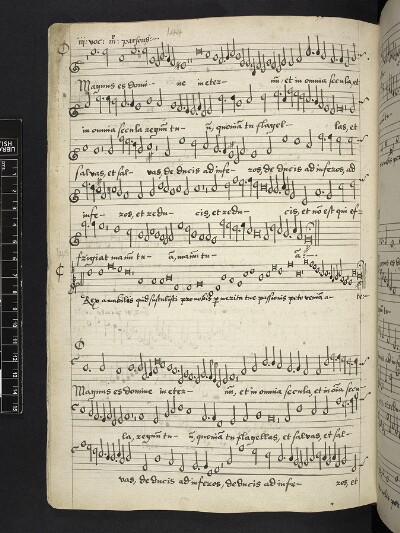 iij: voc: m̃: parsons:—
144
Magnus es domi- ne in eter- nũ, et in omnia secula, et
in omnia secula regnũ tu- ũ, quoniã tu flagel- las, et
salvas, et sal- vas, deducis ad infe- ros, deducis ad inferos, ad
infe- ros, et redu- cis, et redu- cis, et nõ est qui ef-
fugiat manũ tu- ã, manũ tu- ã:—
Magnus es domine in eter- nũ, et in omnia secula, et in oĩa secu-
la, regnũ tu- ũ, quoniã tu flagellas, et salvas, et sal-
vas, deducis ad inferos, deducis ad infe- ros, et